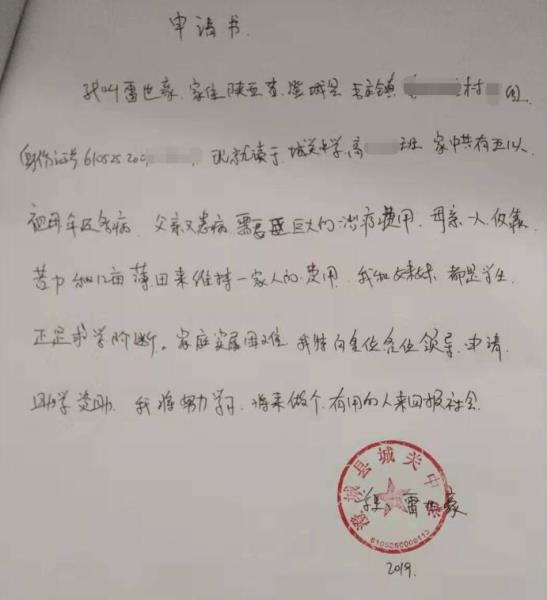 申请书
我叫雷世豪,家住陕西省,澄城县 镇 村 组
身份证号610525200 ,现就读于,城关中学,高 班 家中共有五口人,
祖母年迈多病,父亲又患病 需要 巨大的治疗费用,母亲一人仅靠
苦力和几亩薄田来维持一家人的费用,我和妹妹,都是学生,
正是求学阶断。家庭实属困难 我特向 各位领导,申请,
助学资助,我将努力学习,将来做个,有用的人来回报社会.
澄城县城关中学
学生,雷世豪
6105250009113
2019.